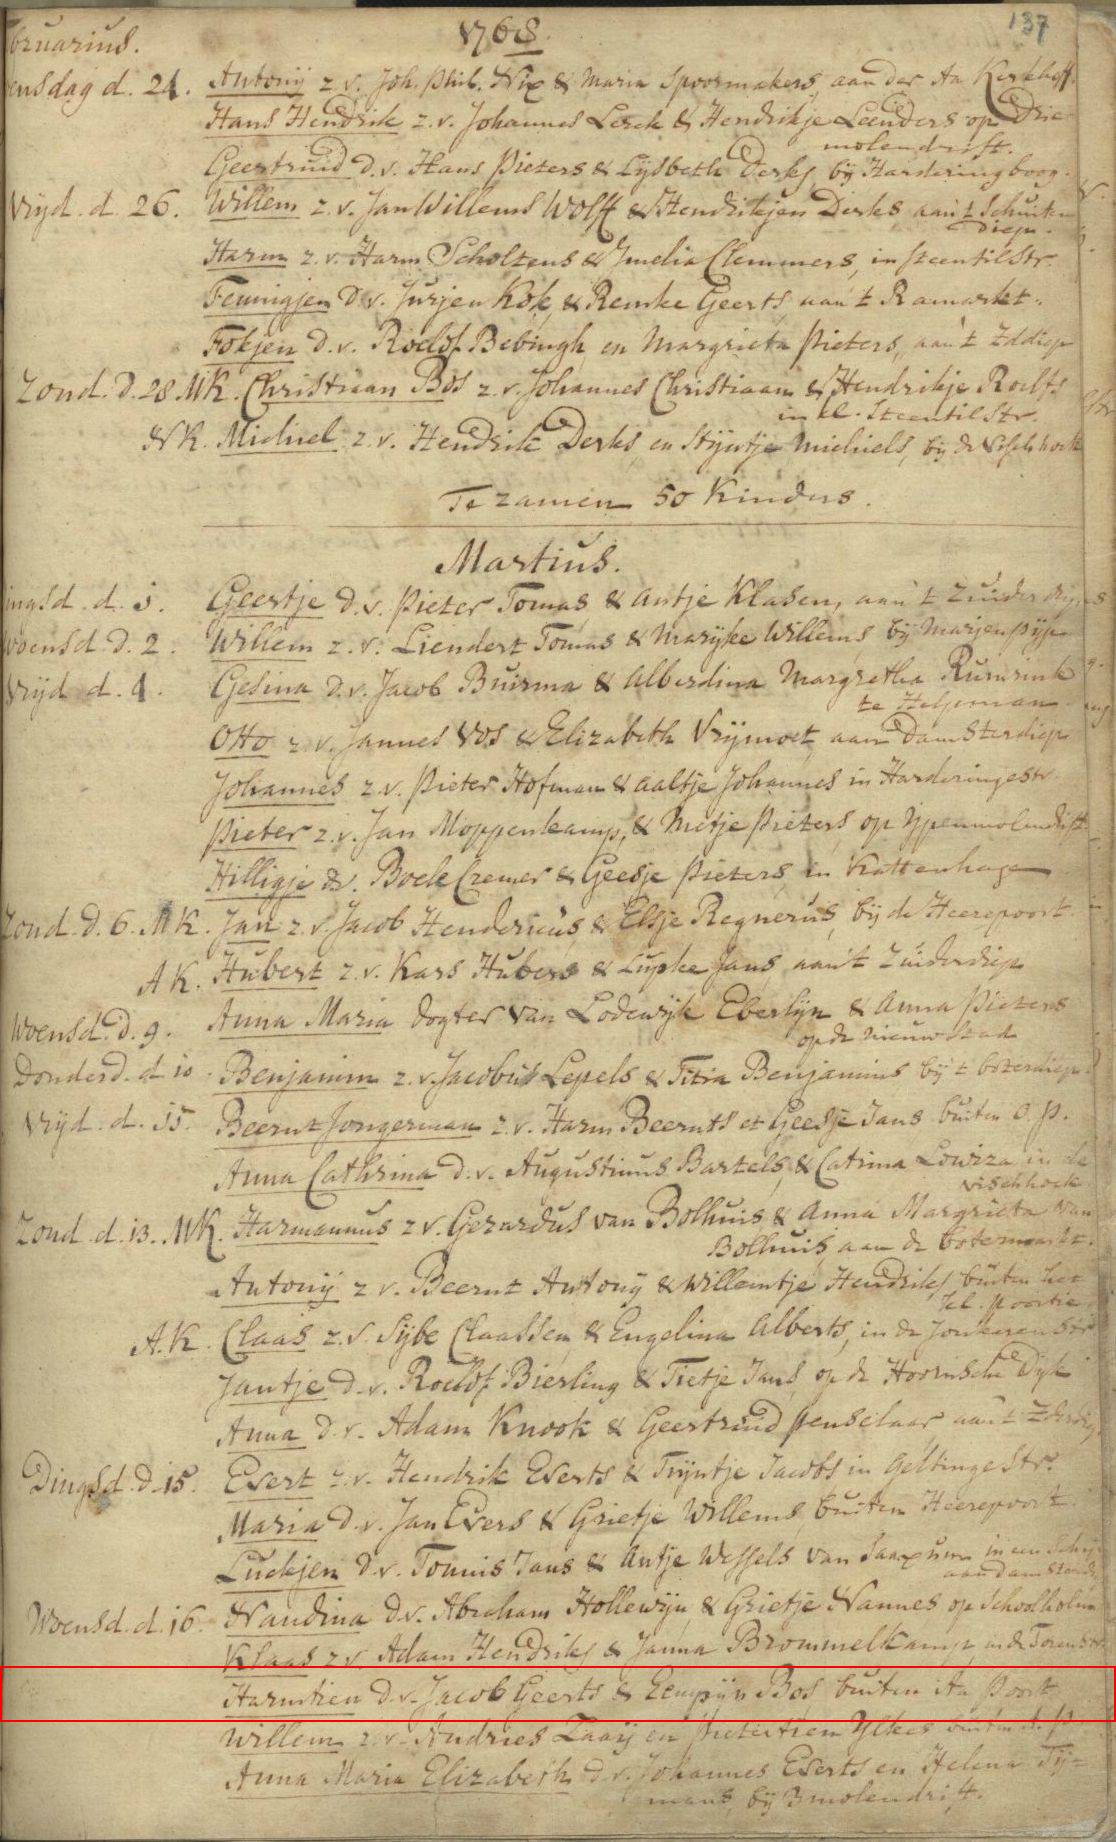 137
bruarius. 1768.
ensdag d. 24. Antonij z.v. Joh. Phil. Nix & Maria Spoormakers, aan der Aa Kerkhoff.
Hans Hendrik z.v. Johannes Lesck & Hendrikje Leenders op Drie
molendrift.
Geertruid D.v. Hans Pieters & Lijsbeth Derks bij Harderingboog.
Vrijd. d. 26. Willem z.v. Jan Willems Wolff & Hendrikjen Derks, aan't Schuiten
Diep.
Harm z.v. Harm Scholtens & Jmelia Clemmers, in steentilstr.
Femigjen D.v. Jurjen Kok, & Renske Geerts, aan't Ramarkt.
Fokjen D.v. Roelof Bebingh en Margrieta Pieters, aan't Zddiep
Zond. D. 28 MK. Christiaan Bos z.v. Johannes Christiaan & Hendrikje Roelfs
in kl. Steentilstr.
NK. Michiel z.v. Hendrik Derks en Stijntje Michiels, bij de Vischhoek
Te zamen 50 Kinders.
Martius.
ingsd. d. 1. Geertje D.v. Pieter Tomas & Antje Klasen, aan't Zuiderdiep
Woensd. D. 2. Willem z.v. Liendert Tomas & Marijke Willems, bij Marjenpijp
Vrijd d. 4. Gesina D.v. Jacob Buirma & Alberdina Margretha Rumrink
te Helpman
Otto z.v. Jannes Vos & Elizabeth Vrijmoet aan Damsterdiep
Johannes z.v. Pieter Hofman & Aaltje Johannes in Harderingestr.
Pieter z.v. Jan Moppenkamp, & Metje Pieters, op Ypenmolendrift
Hilligje D.v. Boele Cremer & Geesje Pieters in Kattenhage
Zond. D. 6. MK. Jan z.v. Jacob Hendericus & Elsje Regnerus, bij de Heerepoort.
AK. Hubert z.v. Kars Hubers & Lupke Jans, aan't Zuiderdiep
Woensd. D. 9. Anna Maria dogter van Lodewijk Eberlijn & Anna Pieters
op de Nieuwstad
Donderd. d. 10. Benjamin z.v. Jacobus Lepels & Titia Benjamins bij't boterdiep
Vrijd. d. 11. Beernt Jongerman z.v. Harm Beernts et Geesje Jans, buiten O.P.
Anna Cathrina D.v. Augustinus Bartels, & Catrina Lowiza in de
vischhoek
Zond. d. 13. MK. Harmannus z.v. Gerardus van Bolhuis & Anna Margrieta van
Bolhuis aan de botermarkt.
Antonij z.v. Beernt Antonij & Willemtje Hendriks, buiten het
kl. Poortie
A.K. Claas z.v. Sijbe Claassen & Engelina Alberts, in de Jonkerenstr.
Jantje D.v. Roelof Bierling & Tietje Jans, op de Hoornsche Dijk
Anna D.v. Adam Knook & Geertruid Penselaar, aan't Zderdiep
Dingsd. D. 15. Evert z.v. Hendrik Everts & Trijntje Jacobs in Geltingestr.
Maria D.v. Jan Evers & Grietje Willems, buiten Heerepoort.
Luckjen D.v. Tonnis Jans & Antje Wessels van Saaxum in een Schip
aan Damsterd.
Woensd. d. 16. Nandina D.v. Abraham Hollewijn & Grietje Nannes op Schoolholm
Klaas z.v. Adam Hendriks & Janna Brommelkamp, in de Torenstr.
Harmtien D.v. Jacob Geerts & Eempijn Bos buiten Aa Poort
Willem z.v. Andries Laaij en Pietertien Ylkes buiten A.P.
Anna Maria Elizabeth D.v. Johannes Everts en Helena Tij-
mans, bij 3molendrift.